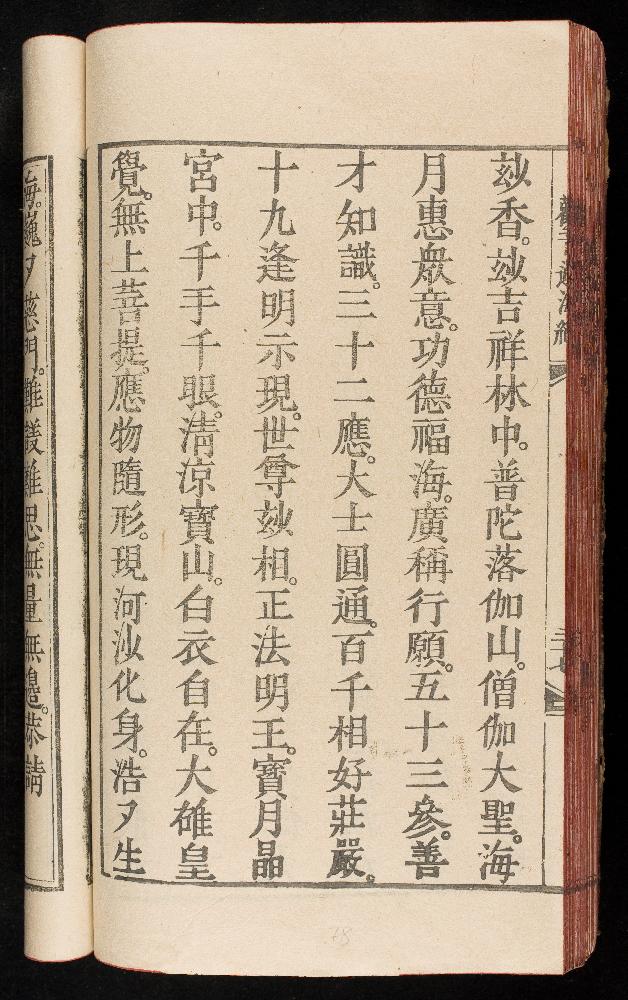 玅香。玅吉祥林中。普陀落伽山。僧伽大聖。海
月惠衆意。功德福海。廣稱行願。五十三參。善
才知識。三十二應。大士圓通。百千相好莊嚴。
十九逢明示現。世尊玅相。正法明王。寶月晶
宮中。千手千眼。清涼寶山。白衣自在。大雄皇
覺。無上菩提。應物隨形。現河沙化身。浩々生
海。巍々慈門。難錢難思。無量無邊。恭請